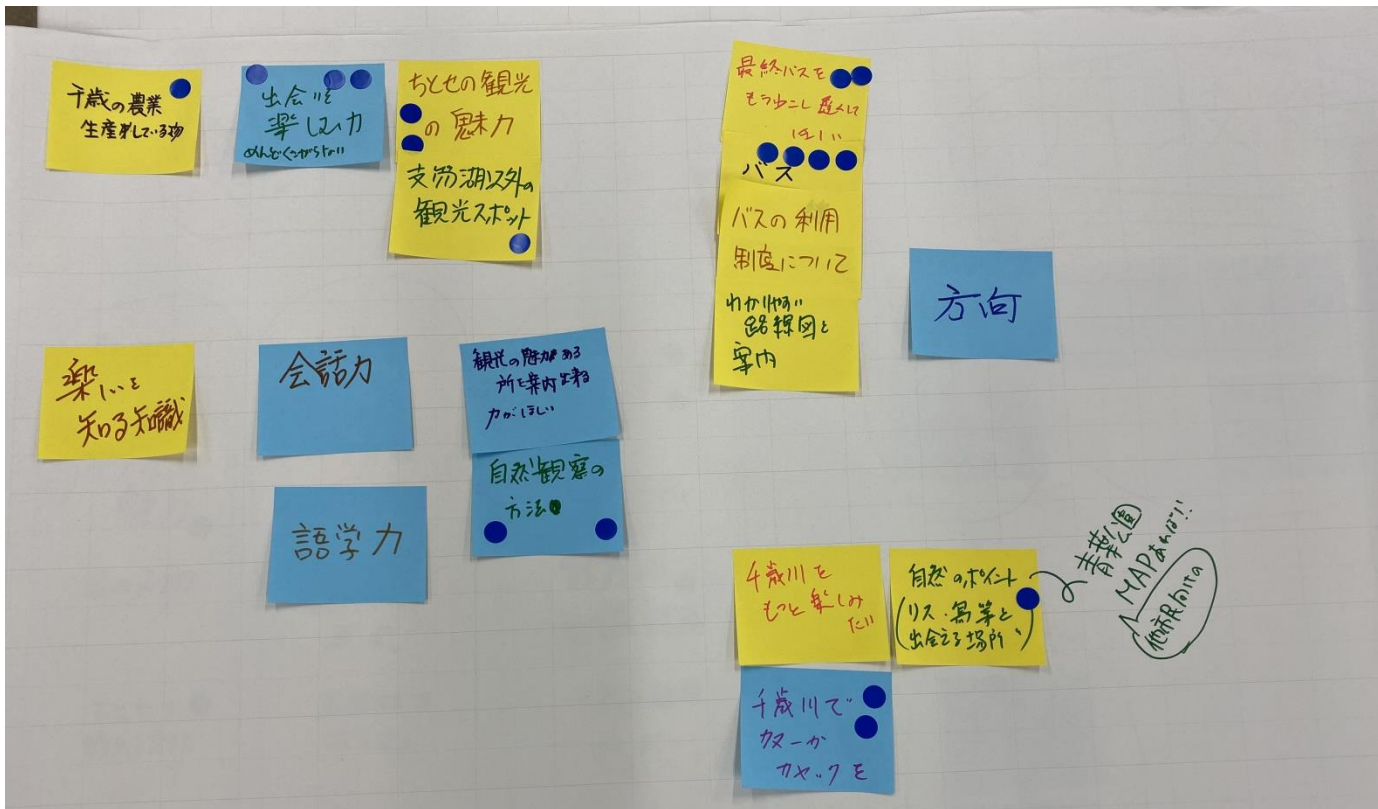 千歳の農業
生産している物
出会いを
楽しむ力
めんどくさがらない
ちとせの観光
の魅力
支笏湖以外の
観光スポット
最終バスを
もう少し遅くして
ほしい
バス
バスの利用
制度について
わかりやすい
路線図と
案内
方向
楽しいを
知る知識
会話力
観光の魅力がある
所を案内出来る
力がほしい
自然観察の
方法
語学力
千歳川を
もっと楽しみ
たい
自然のポイント
(リス・鳥等と
出会える場所)
青葉公園
MAPあれば!!
他市民向けの
千歳川で
カヌーか
カヤックを